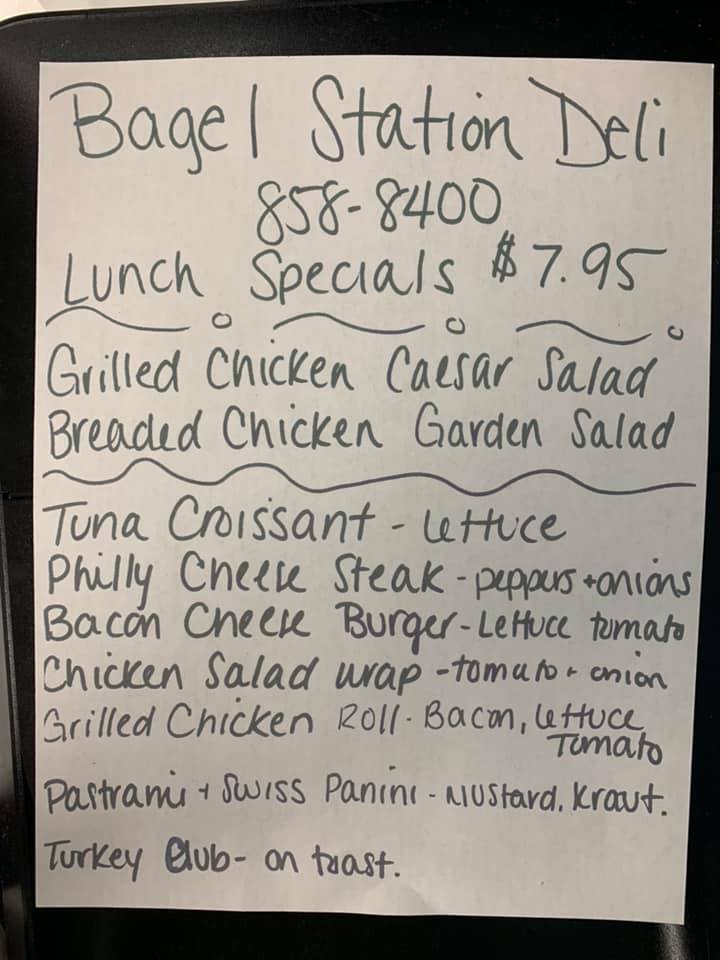 Bagel Station Deli
858-8400
Lunch Specials $7.95
Grilled Chicken Caesar Salad
Breaded Chicken Garden Salad
Tuna Croissant - Lettuce
Philly Cheese Steak - peppers + onions
Bacon Cheese Burger - Lettuce tomato
Chicken Salad wrap - tomato + onion
Grilled Chicken Roll - Bacon, Lettuce
Tomato
Pastrami + Swiss Panini - Mustard. Kraut.
Turkey Club - on toast.